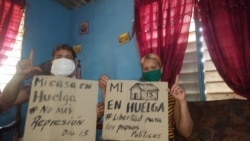 Mi casa en
Huelga
# NO MAS
Represión
Dia 13
MI
EN HUELGA
# Libertad para
los presos
Politicos